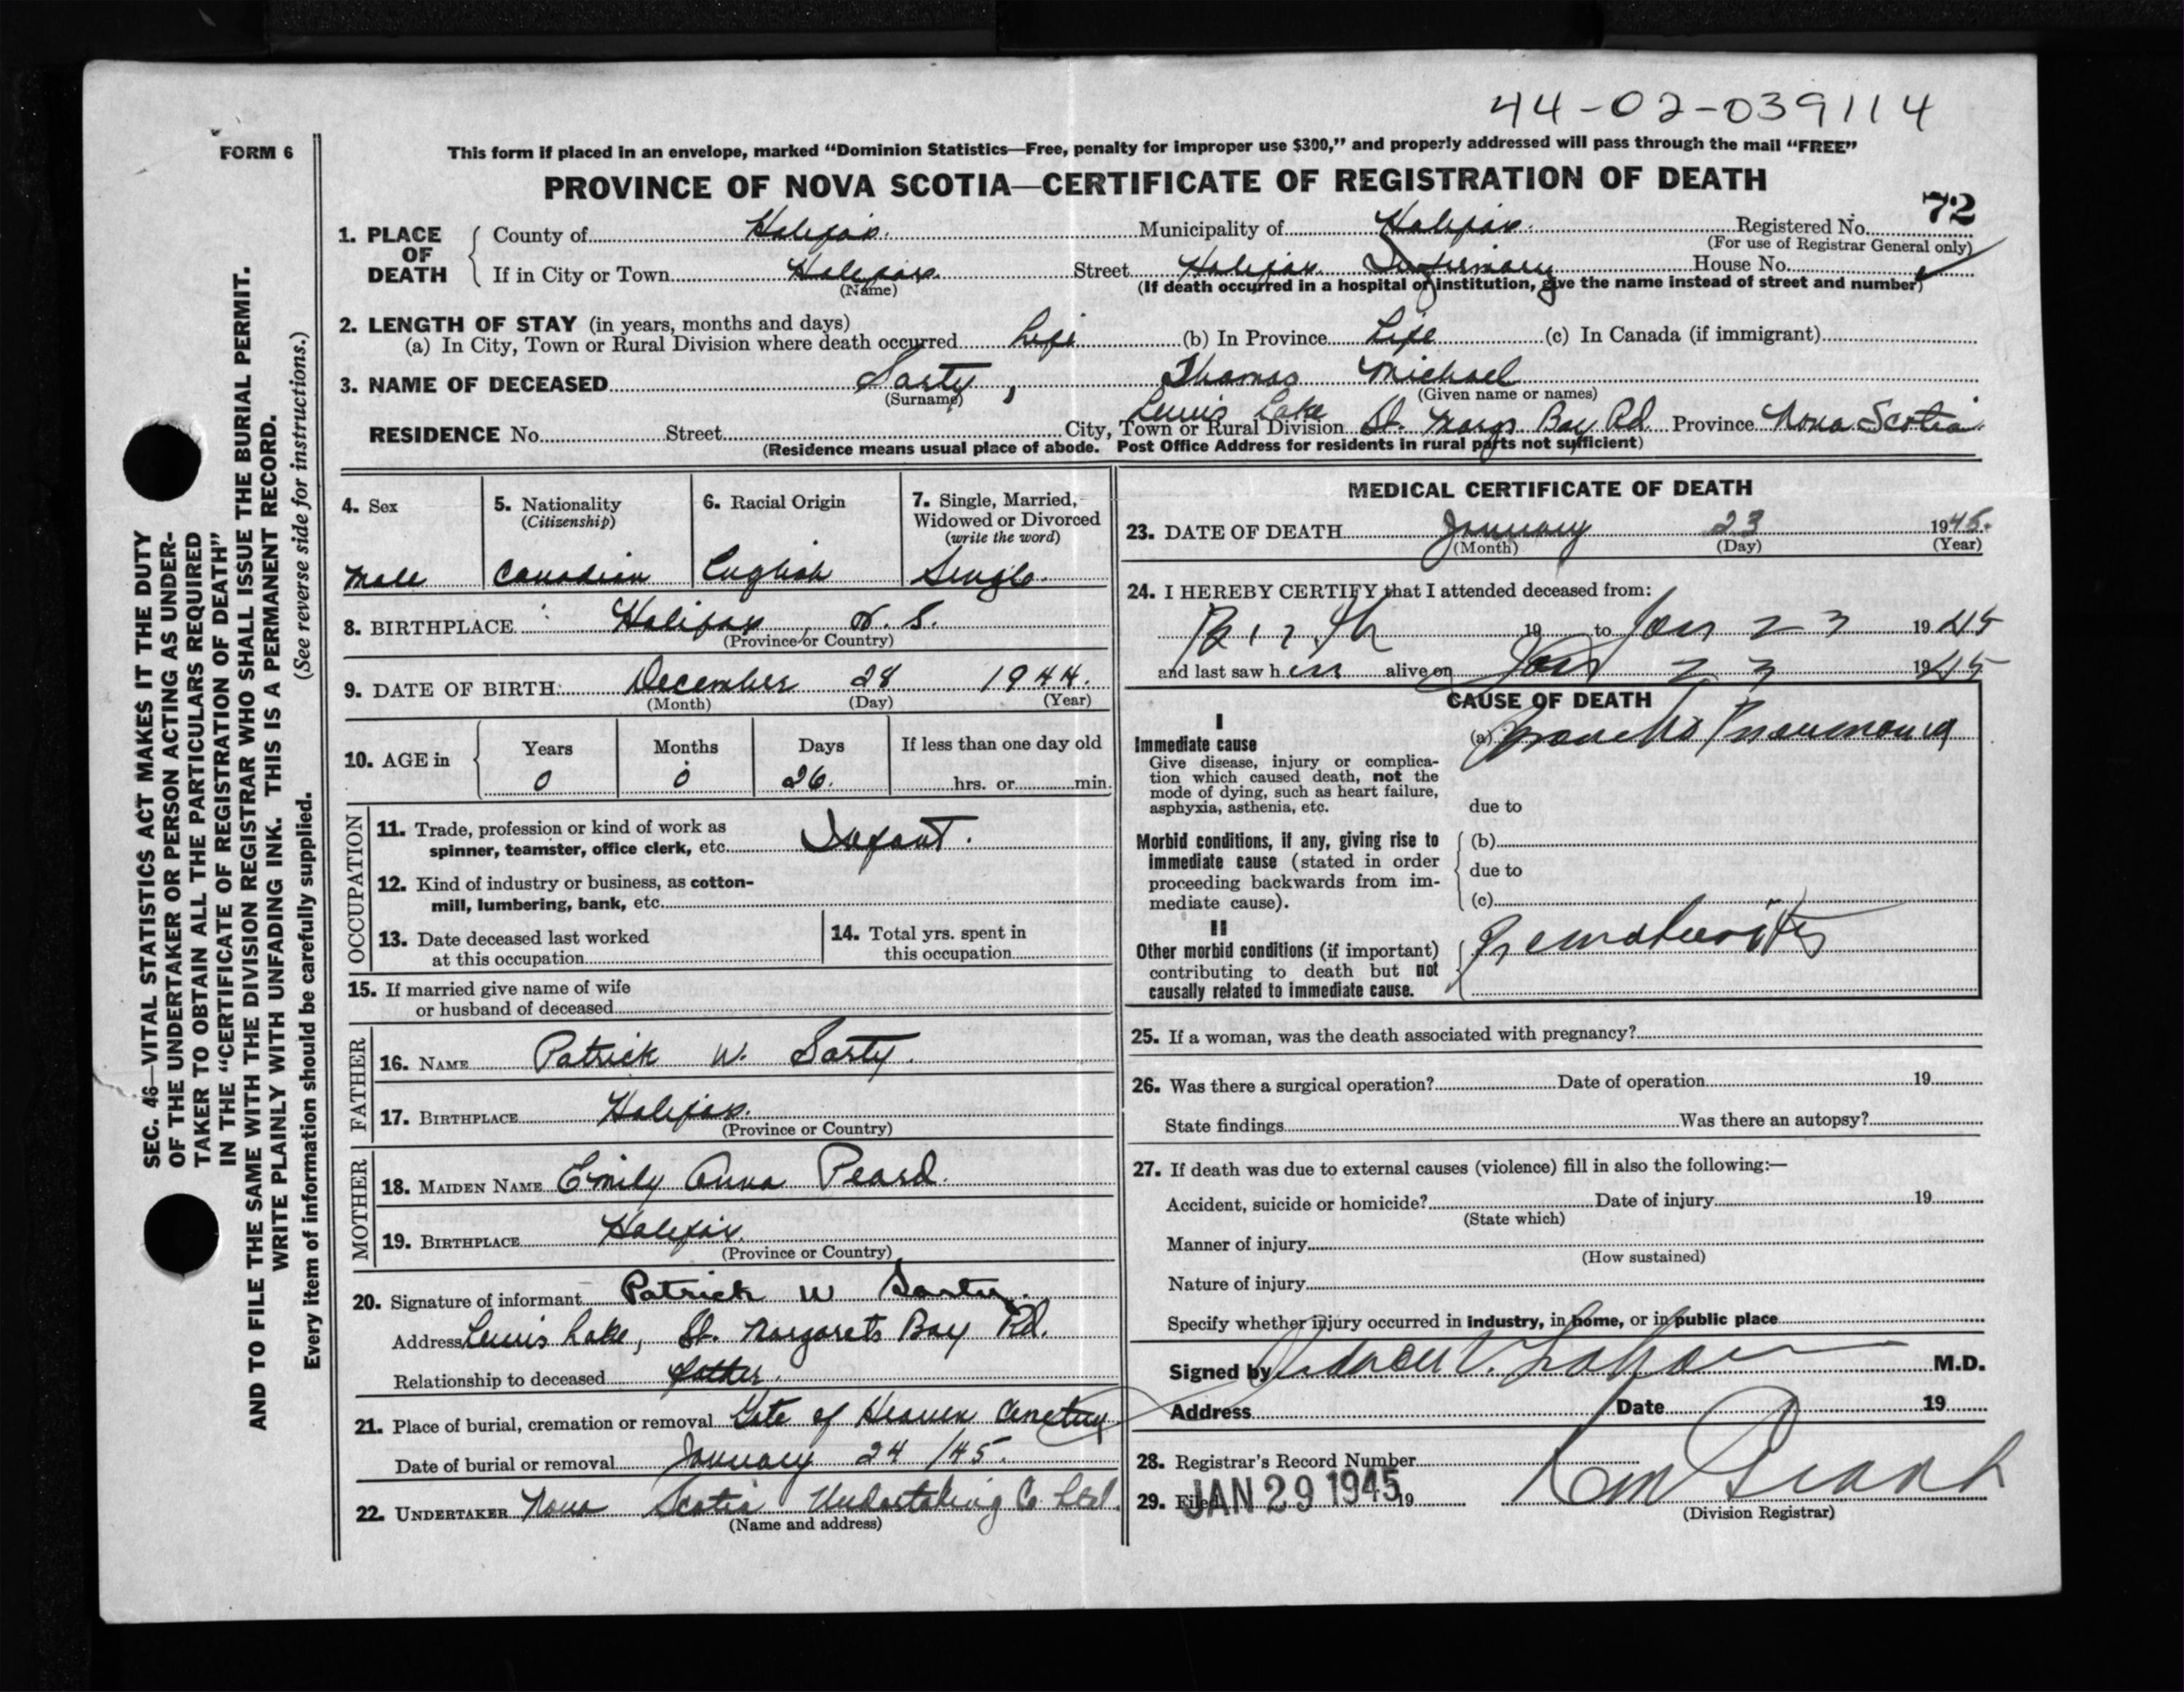 44-02-039114
FORM 6
This form if placed in an envelope, marked "Dominion Statistics—Free, penalty for improper use $300," and properly addressed will pass through the mail "FREE"
PROVINCE OF NOVA SCOTIA—CERTIFICATE OF REGISTRATION OF DEATH
72
1. PLACE OF DEATH County of Halifax. Municipality of Halifax. Registered No.
(For use of Registrar General only)
If in City or Town Halifax. Street Halifax Infirmary House No.
(Name) (If death occurred in a hospital or institution, give the name instead of street and number)
2. LENGTH OF STAY (in years, months and days)
(a) In City, Town or Rural Division where death occurred Life (b) In Province Life (c) In Canada (if immigrant)
3. NAME OF DECEASED Sarty, Thomas Michael
(Surname) (Given name or names)
Lewis Lake
RESIDENCE No. Street City, Town or Rural Division St. Margs Bay Rd. Province Nova Scotia.
(Residence means usual place of abode. Post Office Address for residents in rural parts not sufficient)
4. Sex
5. Nationality
(Citizenship)
6. Racial Origin
7. Single, Married, Widowed or Divorced
(write the word)
Male Canadian English Single.
8. BIRTHPLACE Halifax, N. S.
(Province or Country)
9. DATE OF BIRTH December 28 1944.
(Month) (Day) (Year)
10. AGE in Years Months Days If less than one day old
0 0 26. hrs. or min.
OCCUPATION
11. Trade, profession or kind of work as
spinner, teamster, office clerk, etc. Infant.
12. Kind of industry or business, as cotton-
mill, lumbering, bank, etc.
13. Date deceased last worked
at this occupation
14. Total yrs. spent in
this occupation
15. If married give name of wife
or husband of deceased
FATHER
16. NAME Patrick W. Sarty.
17. BIRTHPLACE Halifax.
(Province or Country)
MOTHER
18. MAIDEN NAME Emily Anna Peard.
19. BIRTHPLACE Halifax.
(Province or Country)
20. Signature of informant Patrick W Sarty.
Address Lewis Lake, St. Margarets Bay Rd.
Relationship to deceased father.
21. Place of burial, cremation or removal Gate of Heaven Cemetery
Date of burial or removal January 24/45.
22. UNDERTAKER Nova Scotia Undertaking Co Ltd.
(Name and address)
MEDICAL CERTIFICATE OF DEATH
23. DATE OF DEATH January 23 1945.
(Month) (Day) (Year)
24. I HEREBY CERTIFY that I attended deceased from:
Birth 19 to Jan 23 1945
and last saw him alive on Jan 23 1945
CAUSE OF DEATH
I
Immediate cause
Give disease, injury or complica-
tion which caused death, not the
mode of dying, such as heart failure,
asphyxia, asthenia, etc.
(a) Broncho Pneumonia
due to
Morbid conditions, if any, giving rise to
immediate cause (stated in order
proceeding backwards from im-
mediate cause).
(b)
due to
(c)
II
Other morbid conditions (if important)
contributing to death but not
causally related to immediate cause.
Prematurity
25. If a woman, was the death associated with pregnancy?
26. Was there a surgical operation? Date of operation 19
State findings Was there an autopsy?
27. If death was due to external causes (violence) fill in also the following:—
Accident, suicide or homicide? Date of injury 19
(State which)
Manner of injury
(How sustained)
Nature of injury
Specify whether injury occurred in industry, in home, or in public place
Signed by M.D.
Address Date 19
28. Registrar's Record Number
29. Filed JAN 29 1945 19
(Division Registrar)
SEC. 46—VITAL STATISTICS ACT MAKES IT THE DUTY
OF THE UNDERTAKER OR PERSON ACTING AS UNDER-
TAKER TO OBTAIN ALL THE PARTICULARS REQUIRED
IN THE "CERTIFICATE OF REGISTRATION OF DEATH"
AND TO FILE THE SAME WITH THE DIVISION REGISTRAR WHO SHALL ISSUE THE BURIAL PERMIT.
WRITE PLAINLY WITH UNFADING INK. THIS IS A PERMANENT RECORD.
Every item of information should be carefully supplied. (See reverse side for instructions.)